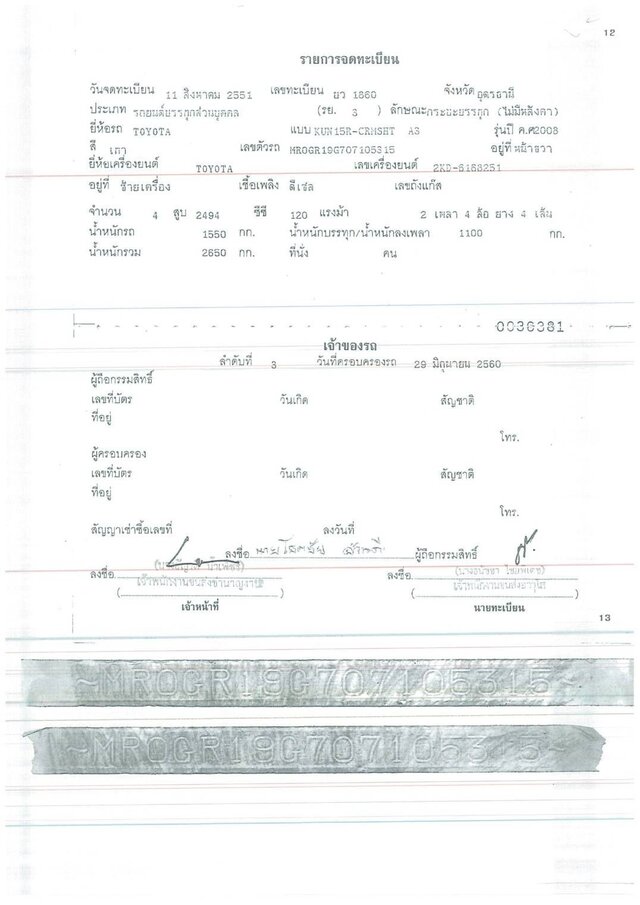 12
รายการจดทะเบียน
วันจดทะเบียน 11 สิงหาคม 2551 เลขทะเบียน บว 1860 จังหวัด อุดรธานี
ประเภท รถยนต์บรรทุกส่วนบุคคล (รย. 3 ) ลักษณะ กระบะบรรทุก (ไม่มีหลังคา)
ยี่ห้อรถ TOYOTA แบบ KUN15R-CRMSHT A3 รุ่นปี ค.ศ2008
สี เทา เลขตัวรถ MR0GR19G707105315 อยู่ที่ หน้าขวา
ยี่ห้อเครื่องยนต์ TOYOTA เลขเครื่องยนต์ 2KD-6168251
อยู่ที่ ซ้ายเครื่อง เชื้อเพลิง ดีเซล เลขถังแก๊ส
จำนวน 4 สูบ 2494 ซีซี 120 แรงม้า 2 เพลา 4 ล้อ ยาง 4 เส้น
น้ำหนักรถ 1550 กก. น้ำหนักบรรทุก/น้ำหนักลงเพลา 1100 กก.
น้ำหนักรวม 2650 กก. ที่นั่ง คน
0030381
เจ้าของรถ
ลำดับที่ 3 วันที่ครอบครองรถ 29 มิถุนายน 2560
ผู้ถือกรรมสิทธิ์
เลขที่บัตร วันเกิด สัญชาติ
ที่อยู่
โทร.
ผู้ครอบครอง
เลขที่บัตร วันเกิด สัญชาติ
ที่อยู่
โทร.
สัญญาเช่าซื้อเลขที่ ลงวันที่
ลงชื่อ นาย ผู้ถือกรรมสิทธิ์
ลงชื่อ ลงชื่อ
เจ้าพนักงานขนส่งชำนาญงาน เจ้าพนักงานขนส่งอาวุโส
เจ้าหน้าที่ นายทะเบียน
13
~MR0GR19G707105315~
~MR0GR19G707105315~